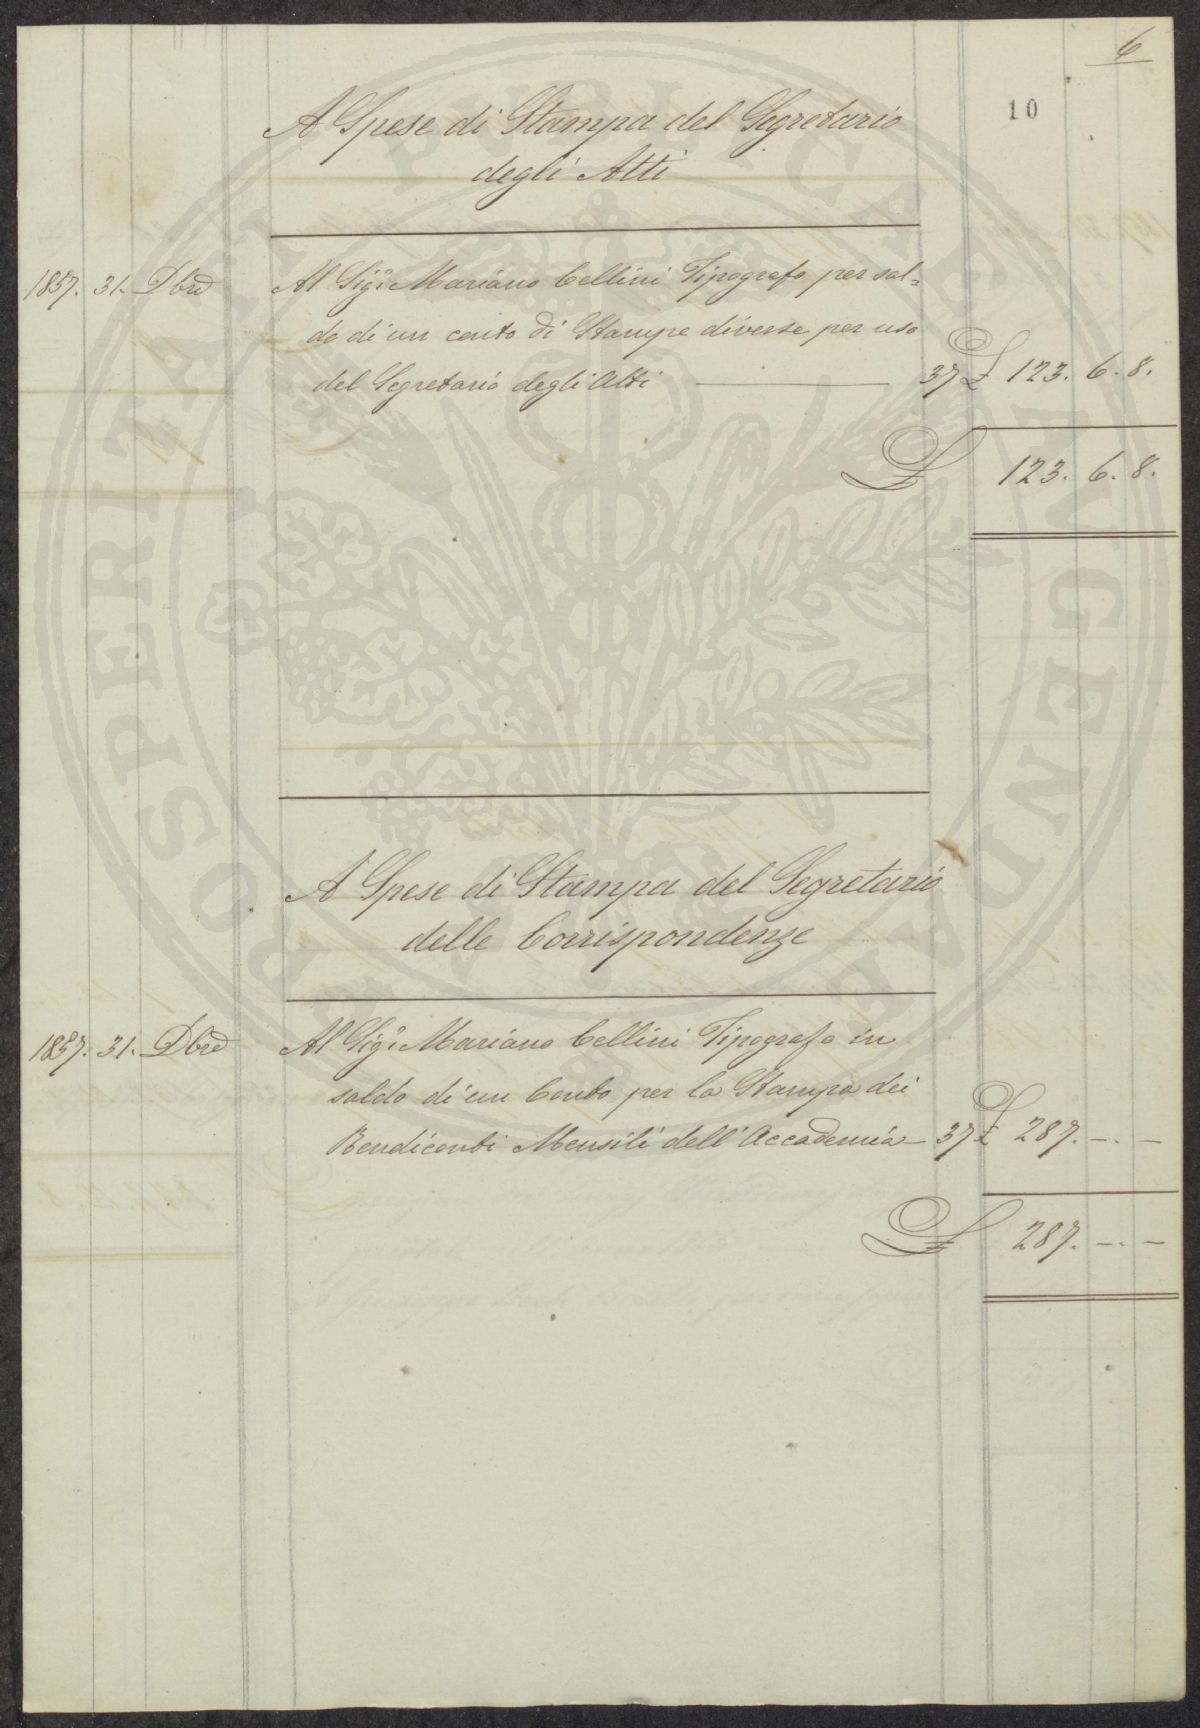 6
10
A Spese di Stampa del Segretario
degli Atti
1857. 31. Dbre Al Sigr. Mariano Cellini Tipografo per sal=
do di un conto di Stampe diverse per uso
del Segretario degli Atti 37 £ 123. 6. 8.
£ 123. 6. 8.
A Spese di Stampa del Segretario
delle Corrispondenze
1857. 31. Dbre Al Sigr. Mariano Cellini Tipografo in
saldo di un Conto per la Stampa dei
Rendiconti Mensili dell'Accademia 37 £ 287. -. -
£ 287. -. -
PROSPERITATI PUBLICAE AUGENDAE